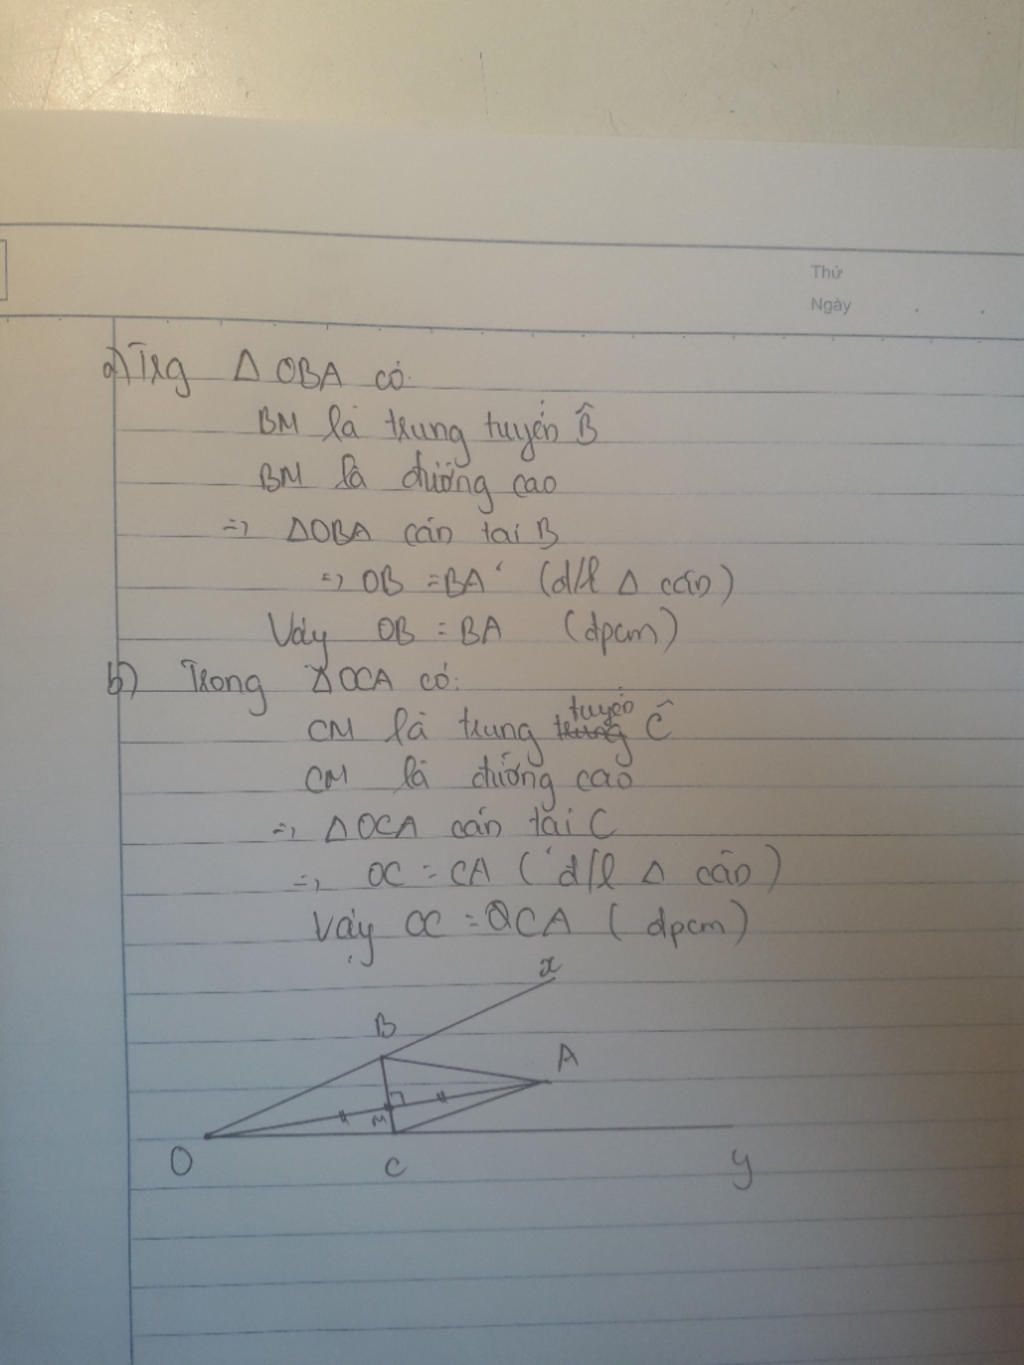 Thứ
Ngày
a) Trg Δ OBA có:
BM là trung tuyến B̂
BM là đường cao
=> ΔOBA cân tại B
=> OB = BA (đ/l Δ cân)
Vậy OB = BA (đpcm)
b) Trong ΔOCA có:
CM là trung tuyến Ĉ
CM là đường cao
=> ΔOCA cân tại C
=> OC = CA (đ/l Δ cân)
Vậy OC = CA (đpcm)
x
B
A
M
O
C
y